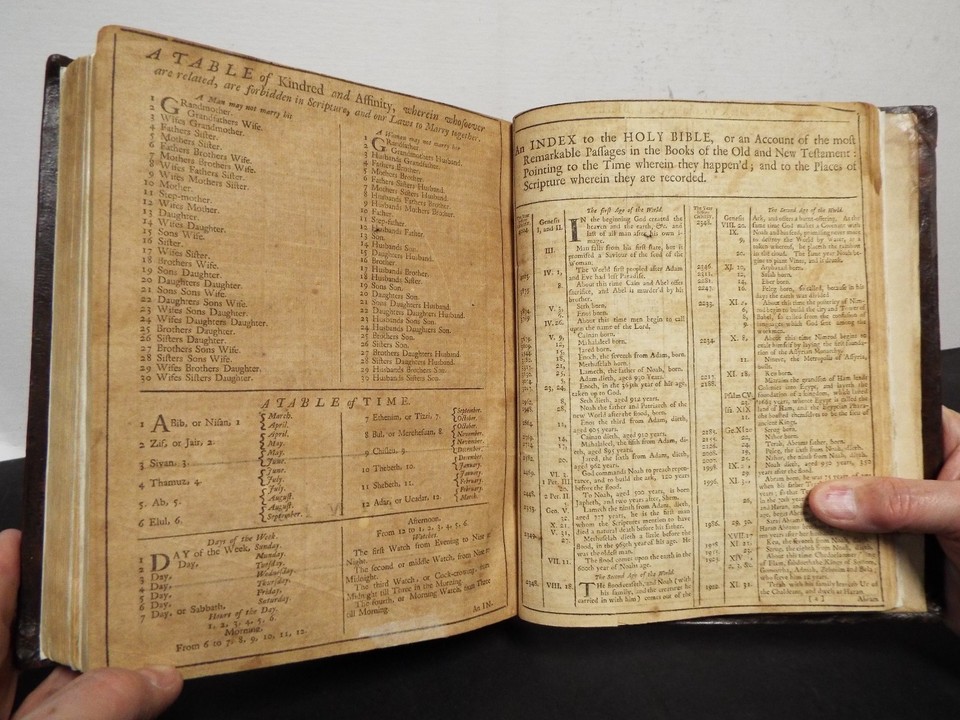 A TABLE of Kindred and Affinity, wherein whosoever
are related, are forbidden in Scripture, and our Laws to Marry together.
A Man may not marry his
1 GRandmother.
2 Grandfathers Wife.
3 Wifes Grandmother.
4 Fathers Sister.
5 Mothers Sister.
6 Fathers Brothers Wife.
7 Mothers Brothers Wife.
8 Wifes Fathers Sister.
9 Wifes Mothers Sister.
10 Mother.
11 Step-mother.
12 Wifes Mother.
13 Daughter.
14 Wifes Daughter.
15 Sons Wife.
16 Sister.
17 Wifes Sister.
18 Brothers Wife.
19 Sons Daughter.
20 Daughters Daughter.
21 Sons Sons Wife.
22 Daughters Sons Wife.
23 Wifes Sons Daughter.
24 Wifes Daughters Daughter.
25 Brothers Daughter.
26 Sisters Daughter.
27 Brothers Sons Wife.
28 Sisters Sons Wife.
29 Wifes Brothers Daughter.
30 Wifes Sisters Daughter.
A Woman may not marry her
1 GRandfather.
2 Grandmothers Husband.
3 Husbands Grandfather.
4 Fathers Brother.
5 Mothers Brother.
6 Fathers Sisters Husband.
7 Mothers Sisters Husband.
8 Husbands Fathers Brother.
9 Husbands Mothers Brother.
10 Father.
11 Step-father.
12 Husbands Father.
13 Son.
14 Husbands Son.
15 Daughters Husband.
16 Brother.
17 Husbands Brother.
18 Sisters Husband.
19 Sons Son.
20 Daughters Son.
21 Sons Daughters Husband.
22 Daughters Daughters Husband.
23 Husbands Sons Son.
24 Husbands Daughters Son.
25 Brothers Son.
26 Sisters Son.
27 Brothers Daughters Husband.
28 Sisters Daughters Husband.
29 Husbands Brothers Son.
30 Husbands Sisters Son.
A TABLE of TIME.
1 ABib, or Nisan, 1 { March. April.
2 Zif, or Jair, 2. { April. May.
3 Sivan, 3. { May. June.
4 Thamuz, 4. { June. July.
5 Ab, 5. { July. August.
6 Elul, 6. { August. September.
7 Ethenim, or Tizri, 7 { September. October.
8 Bul, or Marchesuan, 8 { October. November.
9 Chisleu, 9. { November. December.
10 Thebeth, 10. { December. January.
11 Shebeth, 11. { January. February.
12 Adar, or Ueadar, 12. { February. March.
Days of the Week.
1 DAY of the Week, Sunday.
2 Day, Munday.
3 Day, Tuesday.
4 Day, Wednesday
5 Day, Thursday.
6 Day, Friday.
7 Day, or Sabbath, Saturday
Hours of the Day.
1. 2. 3. 4. 5. 6.
Morning.
From 6 to 7. 8. 9. 10. 11. 12.
Afternoon.
From 12 to 1. 2. 3. 4. 5. 6.
Watches.
The first Watch, from Evening to Nine at
Night.
The second or middle Watch, from Nine to
Midnight.
The third Watch, or Cock-crowing, from
Midnight till Three in the Morning.
The fourth, or Morning Watch, from Three
till Morning.
An IN-
An INDEX to the HOLY BIBLE, or an Account of the most
Remarkable Passages in the Books of the Old and New Testament:
Pointing to the Time wherein they happen'd; and to the Places of
Scripture wherein they are recorded.
Genesis
The first Age of the World.
I, and II. IN the beginning God created the
heavens and the earth, &c. and
last of all man after his own i-
mage.
III. Man falls from his first state, but is
promised a Saviour of the seed of the
Woman.
IV. 1, The World first peopled after Adam
and Eve had left Paradise.
8. About this time Cain and Abel offer
sacrifice, and Abel is murder'd by his
brother.
V. 3. Seth born.
6. Enos born.
IV. 26. About this time men begin to call
upon the name of the Lord,
V. 9, Cainan born.
12, Mahalaleel born.
15, Jared born.
Enoch, the seventh from Adam, born.
Methuselah born.
Lamech, the father of Noah, born.
Adam dieth, aged 930 years.
23, 24. Enoch, in the 365th year of his age,
taken up to God.
8. Seth dieth, aged 912 years.
28, Noah the father and Patriarch of the
new World after the flood, born.
11. Enos the third from Adam, dieth,
aged 905 years.
14, Cainan dieth, aged 910 years.
17, Mahalaleel the fifth from Adam, di-
eth, aged 895 years.
20. Jared, the sixth from Adam, dieth,
aged 962 years.
VI. 3. God commands Noah to preach repen-
1 Pet. III. tance, and to build the ark, 120 years
before the flood.
2 Pet. II. To Noah, aged 500 years, is born
Japheth, and two years after, Shem.
Gen. V. Lamech the ninth from Adam, dieth,
aged 777 years, he is the first man
whom the Scriptures mention to have
died a natural death before his father.
Methuselah dieth a little before the
flood, in the 969th year of his age. He
was the oldest man.
VII. 11. The flood comes upon the earth in the
600th year of Noah's age.
The Second Age of the World
2348. VIII. 18. THis Forefather, and Noah (with
his family, and the creatures he
carried in with him) comes out of the
Genesis
The Second Age of the World.
VIII. 20. Ark, and offers a burnt-offering. At the
IX. same time God makes a Covenant with
Noah and his seed, promising never more
to destroy the World by Water, as a
token whereof, he placeth the rainbow
20. in the cloud. The same year Noah be-
gins to plant Vines, and is drunk.
2346. XI. 10, Arphaxad born.
2311. 12, Salah born.
2281. 14, Eber born.
2247. 16. Peleg born, so called, because in his
days the earth was divided.
XI. 2. About this time the posterity of Noah
begin to build the City and Tower of
Babel, so called from the confusion of
languages which God sent among the
workmen.
X. 8. About this time Nimrod begins to
exalt himself by laying the first founda-
tion of the Assyrian Monarchy.
11. Nineve, the Metropolis of Assyria,
built.
XI. 18. Reu born.
2188. Misraim the grandson of Ham leads
Colonies into Egypt, and layeth the
foundation of a kingdom, which lasted
1663 years, whence Egypt is called the
land of Ham, and the Egyptian Phara-
ohs boasted themselves to be the sons of
ancient Kings.
Serug born.
Nahor born.
Terah, Abrams father, born.
Peleg, the sixth from Noah, dieth.
Nahor, the ninth from Noah, dieth.
1998. IX. 29 Noah dieth, aged 950 years, 350
years after the flood.
1996. Abram born, he was 75 years
1921. XII. 1. About this time Chedorlaomer King
of Elam, subdueth the Kings of Sodom,
Gomorrha, Admah, Zeboim and Bela,
who serve him 12 years.
XI. 31. Terah with his family leaveth Ur of
the Chaldeans, and dwelt at Haran.
[ a ]
Abram